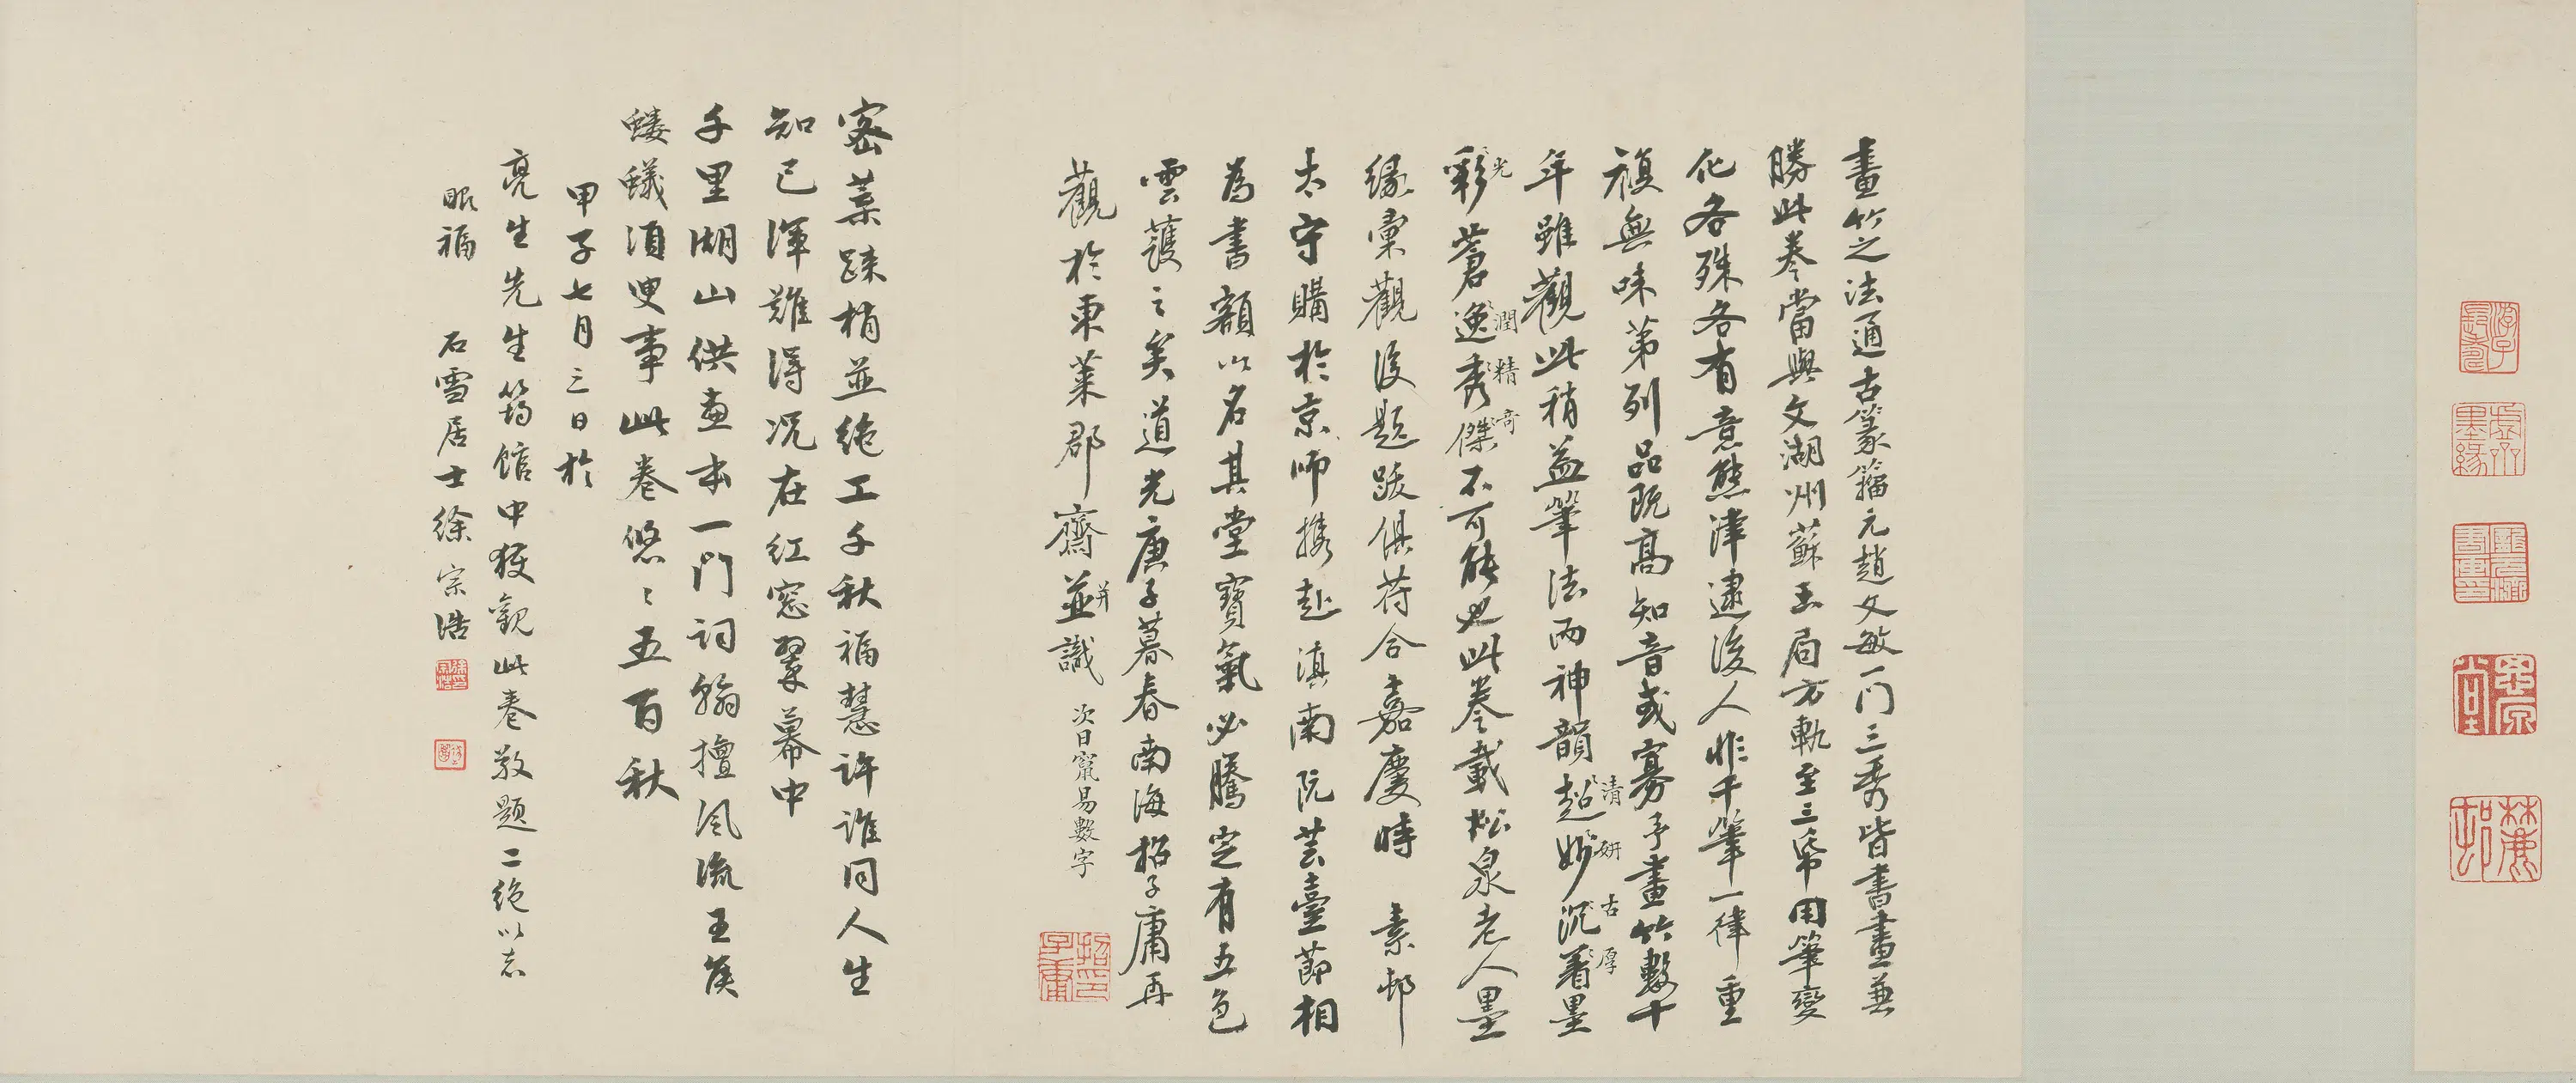 畫竹之法通古篆籀元趙文敏一門三秀皆書畫兼
勝此卷當與文湖州蘇玉局方軌至三帋用筆變
化各殊各有意態津逮後人非千筆一律重
複無味第列品既高知音或寡予畫竹數十
年雖觀此稍益筆法而神韻超妙沉着墨
清妍古厚
彩蒼逸秀傑不可能也此卷載松泉老人墨
光潤精奇
緣彙觀後題跋俱符合嘉慶時素邨
太守購於京師携赴滇南阮芸臺節相
為書額以名其堂寶氣必騰定有五色
雲護之矣道光庚子暮春南海招子庸再
觀於東萊郡齋並識
并
次日竄易數字
招印子庸
密葉疎梢並絶工千秋福慧許誰同人生
知己渾難得况在紅窓翠幕中
千里湖山供畫本一門詞翰擅風流王侯
螻蟻須臾事此卷悠〻五百秋
甲子七月三日於
亮生先生筠館中獲觀此卷敬題二絶以志
眼福 石雪居士徐宗浩